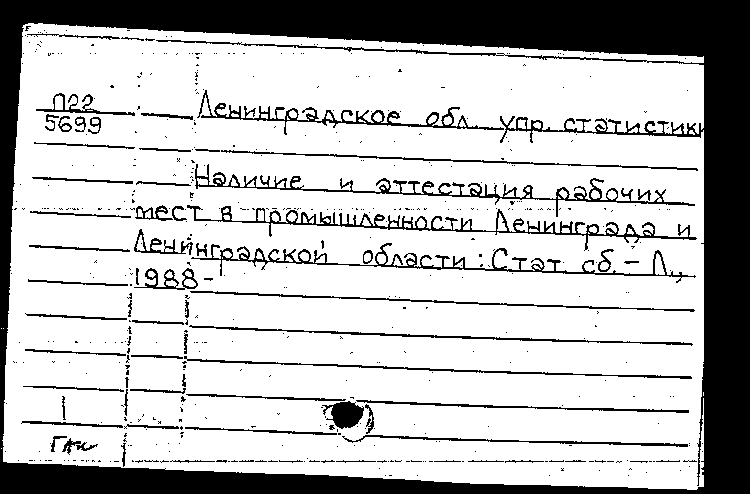 П22
5699
Ленинградское обл. упр. статистики
Наличие и аттестация рабочих
мест в промышленности Ленинграда и
Ленинградской области: Стат. сб. - Л.,
1988-